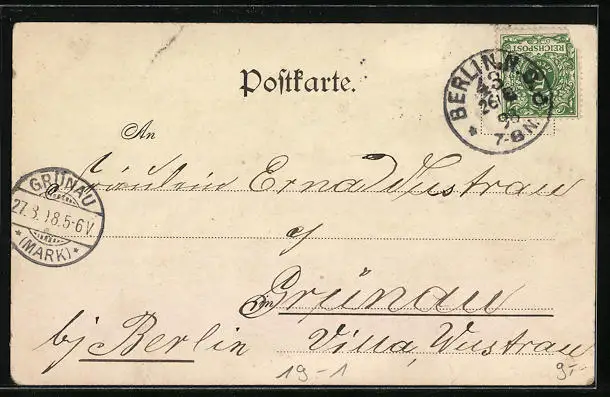 REICHSPOST
BERLIN.N.
43
26/8
98
7-8N.
Postkarte.
An
Fräulein Erna Wustrau
GRÜNAU
27.8.98.5-6V.
(MARK)
in Grünau
bj Berlin
Villa Wustrau
19-1
9,-